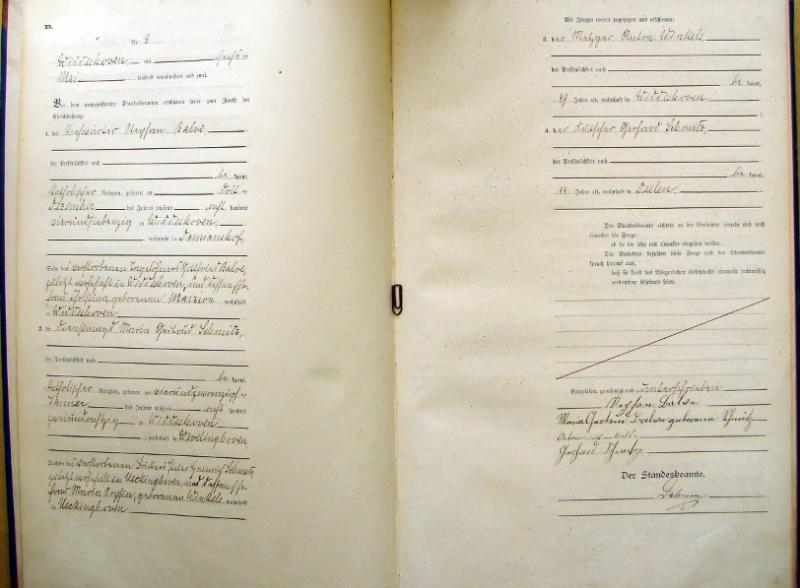 B.
Nr. 8
Widdeshoven, am sechs-
Mai tausend neunhundert und zwei.
Vor dem unterzeichneten Standesbeamten erschienen heute zum Zwecke der
Eheschließung:
1. der Stephan Balve,
der Persönlichkeit nach
be kannt,
katholischer Religion, geboren am
Dezember des Jahres tausend acht hundert
vierundsiebenzig in Widdeshoven,
, wohnhaft in Damianshof,
Sohn des verstorbenen Balve,
zuletzt wohnhaft in Widdeshoven, und dessen Ehe-
frau geborenen wohnhaft
in Widdeshoven
2. die Dienstmagd Maria Gertrud Schmitz,
der Persönlichkeit nach
be kannt,
katholischer Religion, geboren am vierundzwanzigsten
Januar des Jahres tausend acht hundert
zweiundachtzig in Widdeshoven
, wohnhaft in Wevelinghoven,
Tochter des verstorbenen Peter Heinrich Schmitz,
zuletzt wohnhaft in Ueckinghoven, und dessen Ehe-
frau Maria geborenen Winkels wohnhaft
in Ueckinghoven.
Als Zeugen waren zugezogen und erschienen:
3. der Metzger Anton Winkels
der Persönlichkeit nach
be kannt,
Jahre alt, wohnhaft in Widdeshoven
;
4. der Gerhard Schmitz,
der Persönlichkeit nach
be kannt,
Jahre alt, wohnhaft in
Der Standesbeamte richtete an die Verlobten einzeln und nach
einander die Frage:
ob sie die Ehe mit einander eingehen wollen.
Die Verlobten bejahten diese Frage und der Standesbeamte
sprach hierauf aus,
daß sie kraft des Bürgerlichen Gesetzbuchs nunmehr rechtmäßig
verbundene Eheleute seien.
Vorgelesen, genehmigt und unterschrieben
Stephan Balve
Maria Gertrud Balve geborene Schmitz
Gerhard Schmitz
Der Standesbeamte.